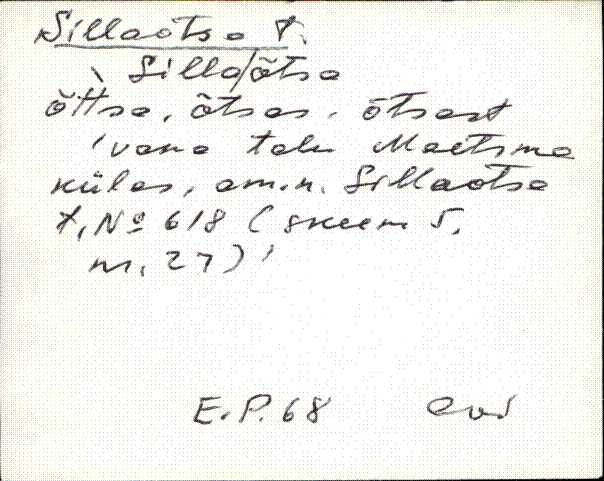 Sillaotsa t.
`Silla/õtsa
õttsa, õtsas, õtsast
'vana talu Maetsma
külas, am.n. Sillaotsa
t, № 618 (skeem 5,
nr. 27)'
E.P. 68